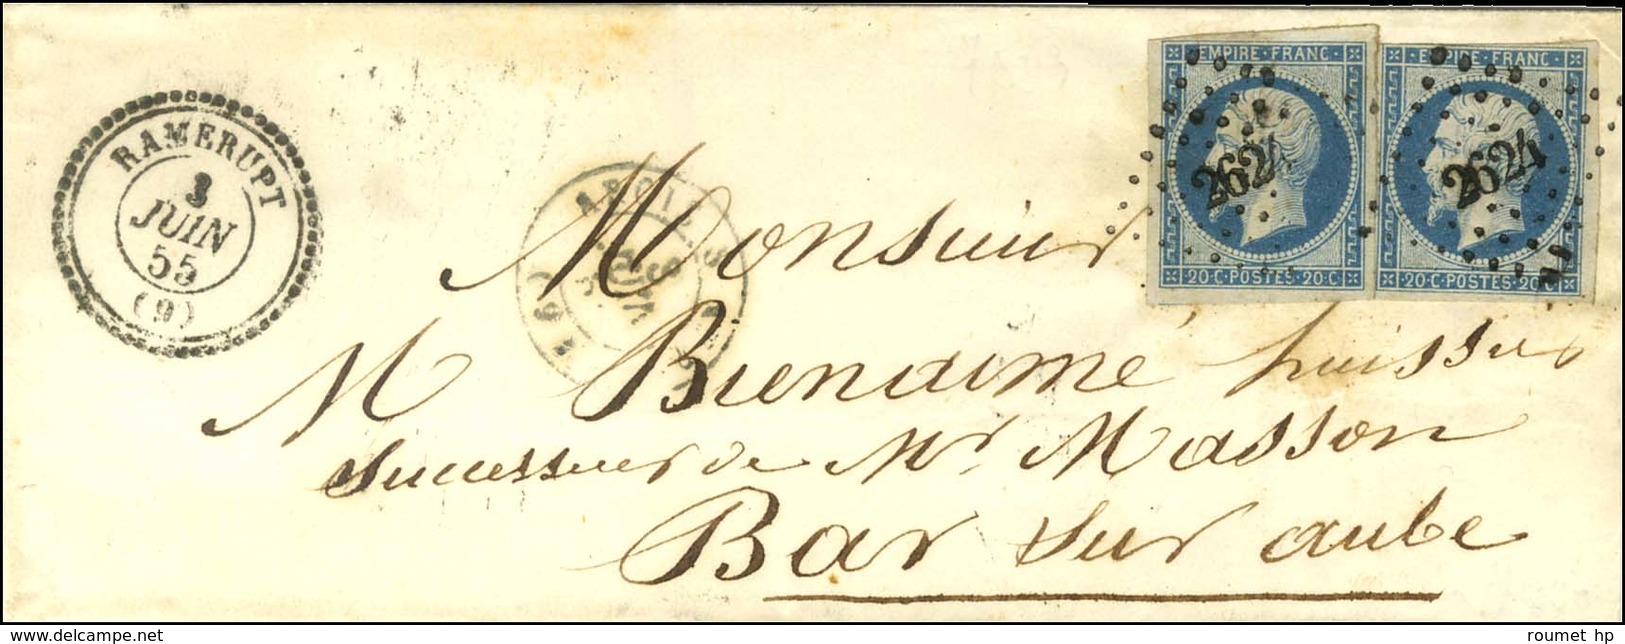 RAMERUPT
3
JUIN
55
(9)
EMPIRE·FRANC·
2624
20·C·POSTES·20·C
EMPIRE·FRANC·
2624
20·C·POSTES·20·C
Monsieur
M Bienaimé huissier
successeur de Mr Masson
Bar sur aube
www.delcampe.net
roumet hp